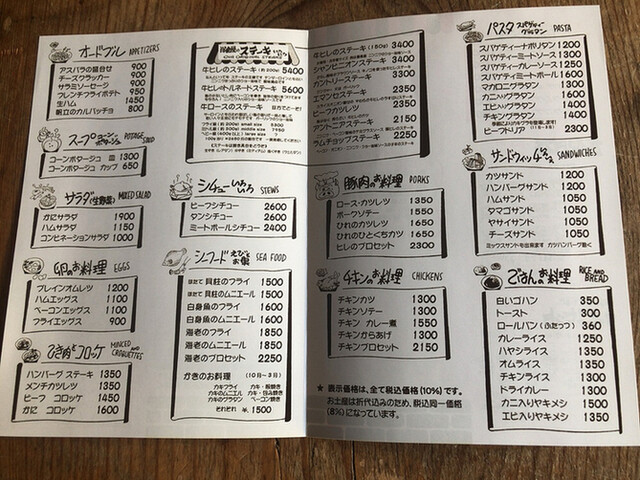 オードブル APPETIZERS
アスパラの盛合せ 900
チーズクラッカー 900
サラミソーセージ 900
フレンチフライポテト 950
生ハム 1450
帆立のカルパッチョ 800
スープ コーン・ポタージュ POTAGE SOUP
コーンポタージュ 皿 1300
コーンポタージュ カップ 650
サラダ(生野菜) MIXED SALAD
かにサラダ 1900
ハムサラダ 1150
コンビネーションサラダ 1000
卵のお料理 EGGS
プレインオムレツ 1100
ハムエッグス 1200
ベーコンエッグス 1100
フライエッグス 900
ひき肉とコロッケ MINCED AND CROQUETTES
ハンバーグ ステーキ 1350
メンチカツレツ 1350
ビーフ コロッケ 1450
かに コロッケ 1600
ステーキ いろいろ
牛ヒレのステーキ (約200g) 5400
牛ヒレのトルネードステーキ 5600
牛ロースのステーキ 目方でどーぞ!
シチューいろいろ STEWS
ビーフシチュー 2600
タンシチュー 2600
ミートボールシチュー 2400
シーフード えびとお魚 SEA FOOD
ほたて 貝柱のフライ 1500
ほたて 貝柱のムニエール 1500
白身魚のフライ 1600
白身魚のムニエール 1600
海老のフライ 1850
海老のムニエール 1850
海老のプロセット 2250
かきのお料理 (10月~3月)
カキフライ カキ・殻焼き
カキのムニエル カキ・包み焼き
カキのグラタン ベーコン焼き
それぞれ ¥1500
牛ヒレのステーキ (150g) 3400
シャンピニオンステーキ 3400
カントリーステーキ 3300
エスカロップステーキ 2350
ビーフカツレツ 2350
アントニアステーキ 2150
ラムチョップステーキ 2350
豚肉のお料理 PORKS
ロース・カツレツ 1350
ポークソテー 1550
ひれのカツレツ 1650
ひれのひとくちカツ 1650
ヒレのプロセット 2300
チキンのお料理 CHICKENS
チキンカツ 1300
チキンソテー 1300
チキン カレー煮 1550
チキンからあげ 1300
チキンプロセット 2150
★ 表示価格は、全て税込価格(10%)です。
お土産は折代込みのため、税込同一価格
(8%)になっています。
パスタ スパゲティー グラタン PASTA
スパゲティーナポリタン 1200
スパゲティミートソース 1300
スパゲティカレーソース 1250
スパゲティミートボール 1600
マカロニグラタン 1300
カニ入りグラタン 1600
エビ入りグラタン 1400
チキングラタン 1400
ビーフドリア 2300
サンドウィッチ いろいろ SANDWICHES
カツサンド 1200
ハンバーグサンド 1200
ハムサンド 1050
タマゴサンド 1050
ヤサイサンド 1050
チーズサンド 1050
ミックスサンドも出来ます カツハンバーグ動く
ごはんのお料理 RICE AND BREAD
白いゴハン 350
トースト 300
ロールパン (ふたっつ) 360
カレーライス 1250
ハヤシライス 1350
オムライス 1350
チキンライス 1300
ドライカレー 1300
カニ入りヤキメシ 1500
エビ入りヤキメシ 1350